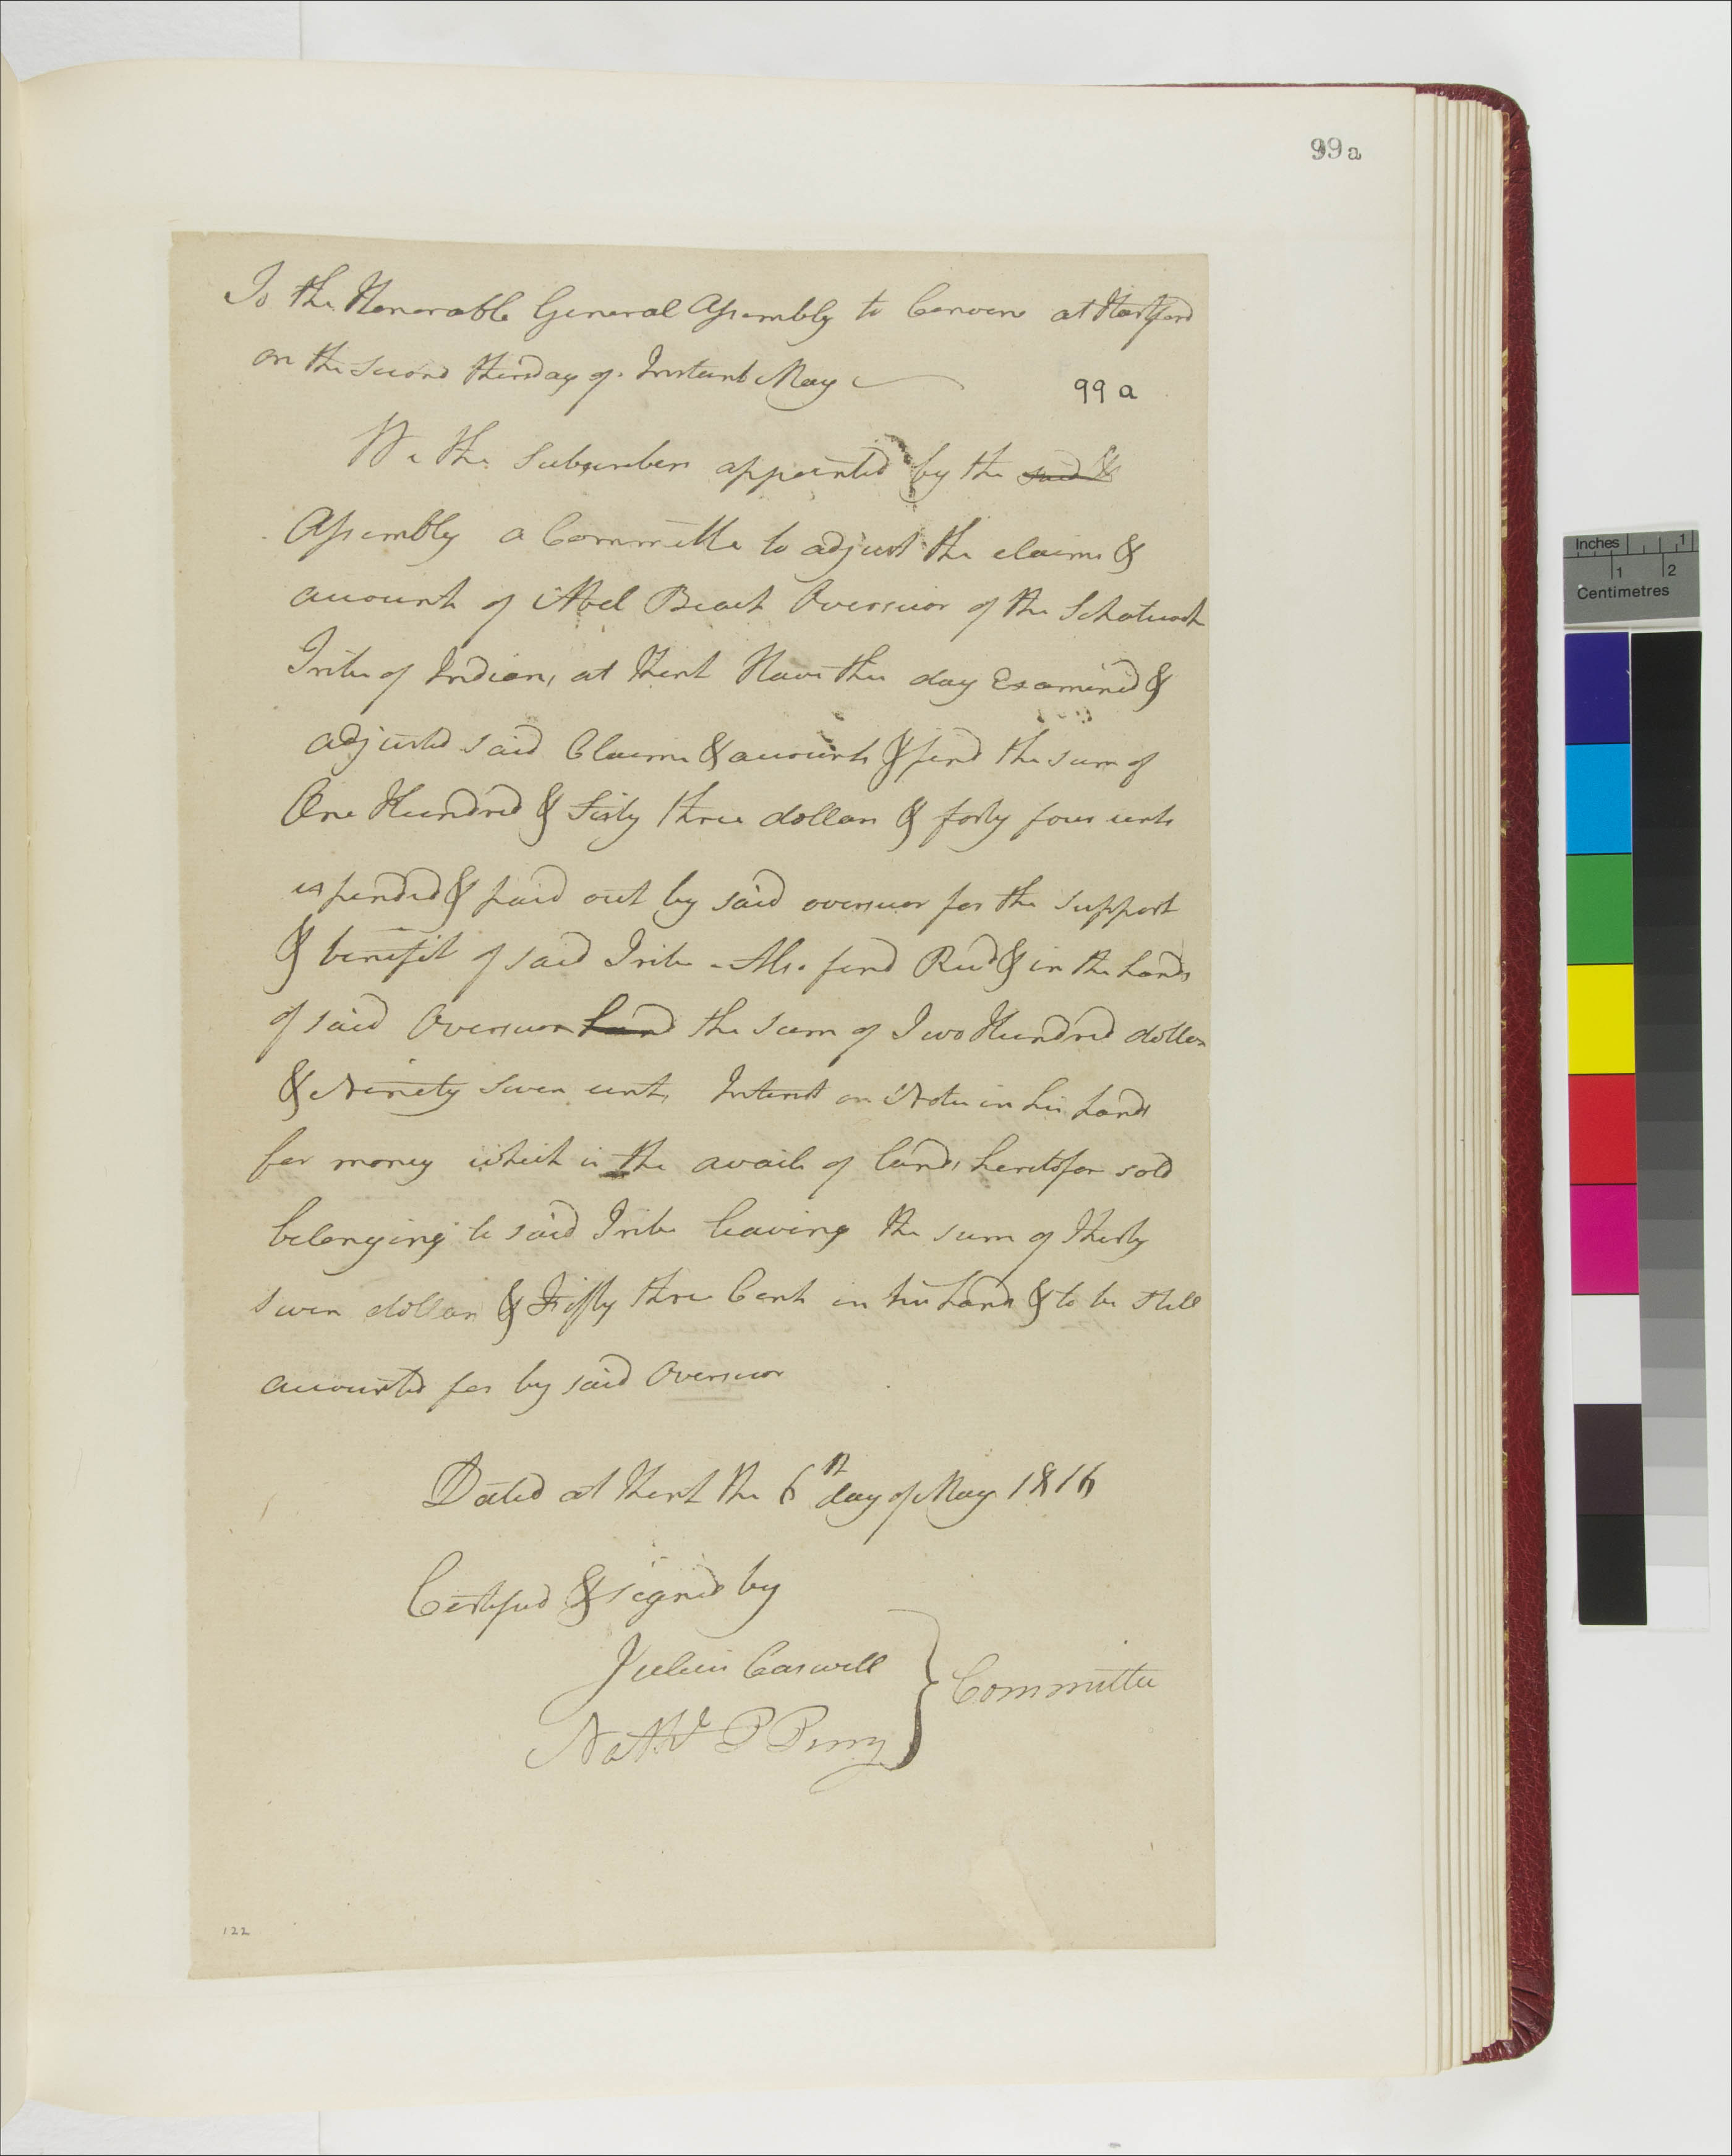 99a
To the Honorable General Assembly to Convene at Hartford
on the Second thirsday of Instant May
99 a
We the Subscribers appointed by the said
Assembly a Committee to adjust the claims &
accounts of Abel Beach Overseeor of the Schatucook
Tribe of Indians at Kent Have this day Examined &
adjusted said Claims & accounts & find the sum of
One Hundred & Sixty three dollars & forty four cents
expended & paid out by said overseeor for the support
& benefit of said Tribe - Also find Recd & in the hands
of said Overseeor hand the Sum of Two Hundred dollars
& Ninety Seven cents, Interest on Notes in his hands
for money which is the avails of lands heretofor sold
belonging to said Tribe leaving the sum of Thirty
Seven dollars & Fifty three Cents in his hands & to be still
accounted for by said Overseeor
Dated at Kent the 6th day of May 1816
Certifyed & signed by
Julius Caswell
Committee
Nathl P Perry
122
Inches 1
1 2
Centimetres